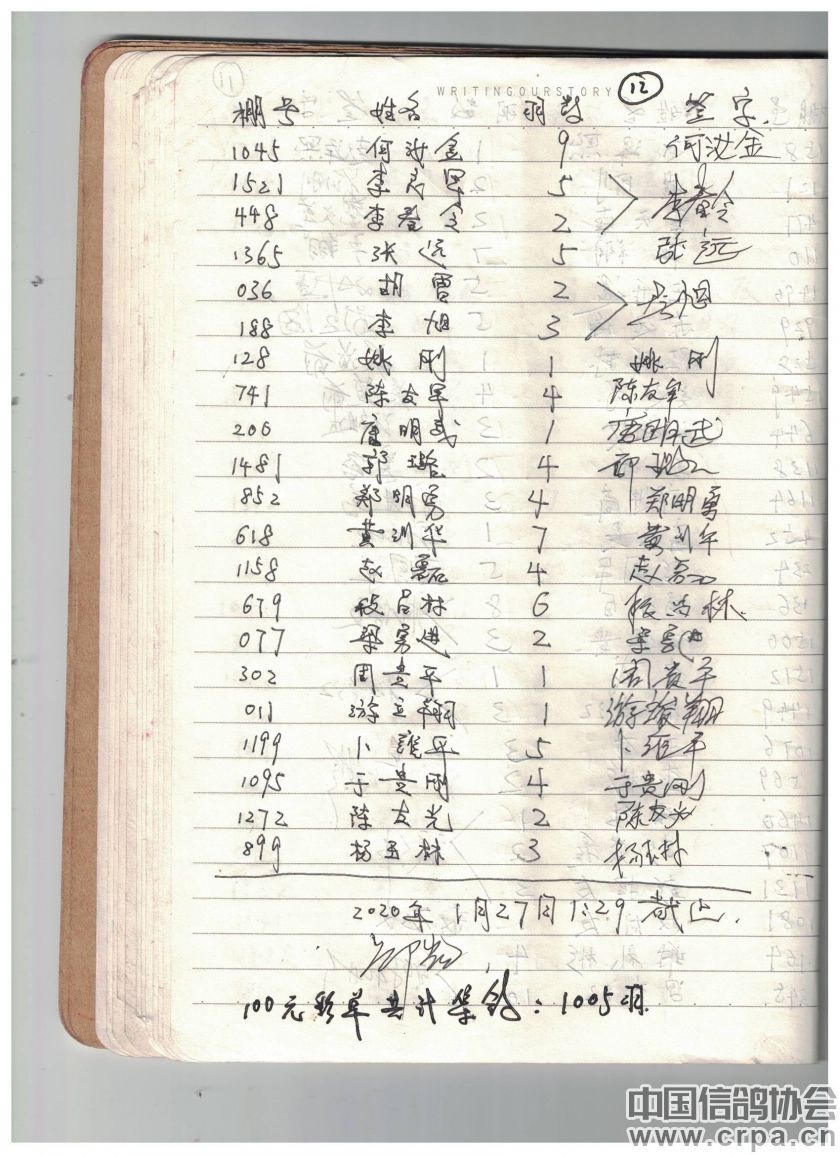 WRITINGOURSTORY 12
棚号 姓名 羽数 签字
1045 何汝金 9 何汝金
1521 李 5
448 李春含 2 李春含
1365 张远 5 张远
036 胡曾 2
188 李旭 3 李旭
128 姚刚 1 姚刚
741 陈友军 4 陈友军
206 唐明武 1 唐明武
1481 4
852 郑明勇 4 郑明勇
618 黄训华 7 黄训华
1158 赵磊 4 赵磊
679 林 6 林
077 梁勇进 2 梁勇进
302 周贵平 1 周贵平
011 游 翔 1 游 翔
1199 卜 平 5 卜 平
1095 于贵刚 4 于贵刚
1272 陈友光 2 陈友光
899 杨玉林 3 杨玉林
2020年1月27日1:29截止.
100元彩单共计集鸽:1005羽.
中国信鸽协会
www.crpa.cn